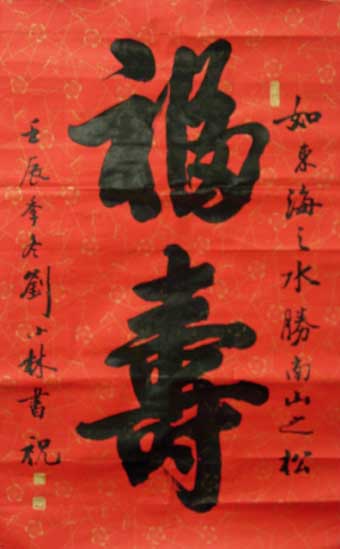 福壽
如東海之水勝南山之松
壬辰季冬劉小林書祝